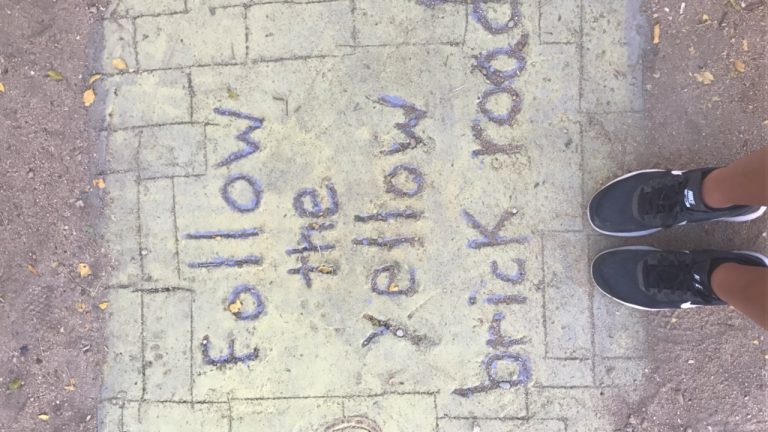 Follow
the
yellow
brick road